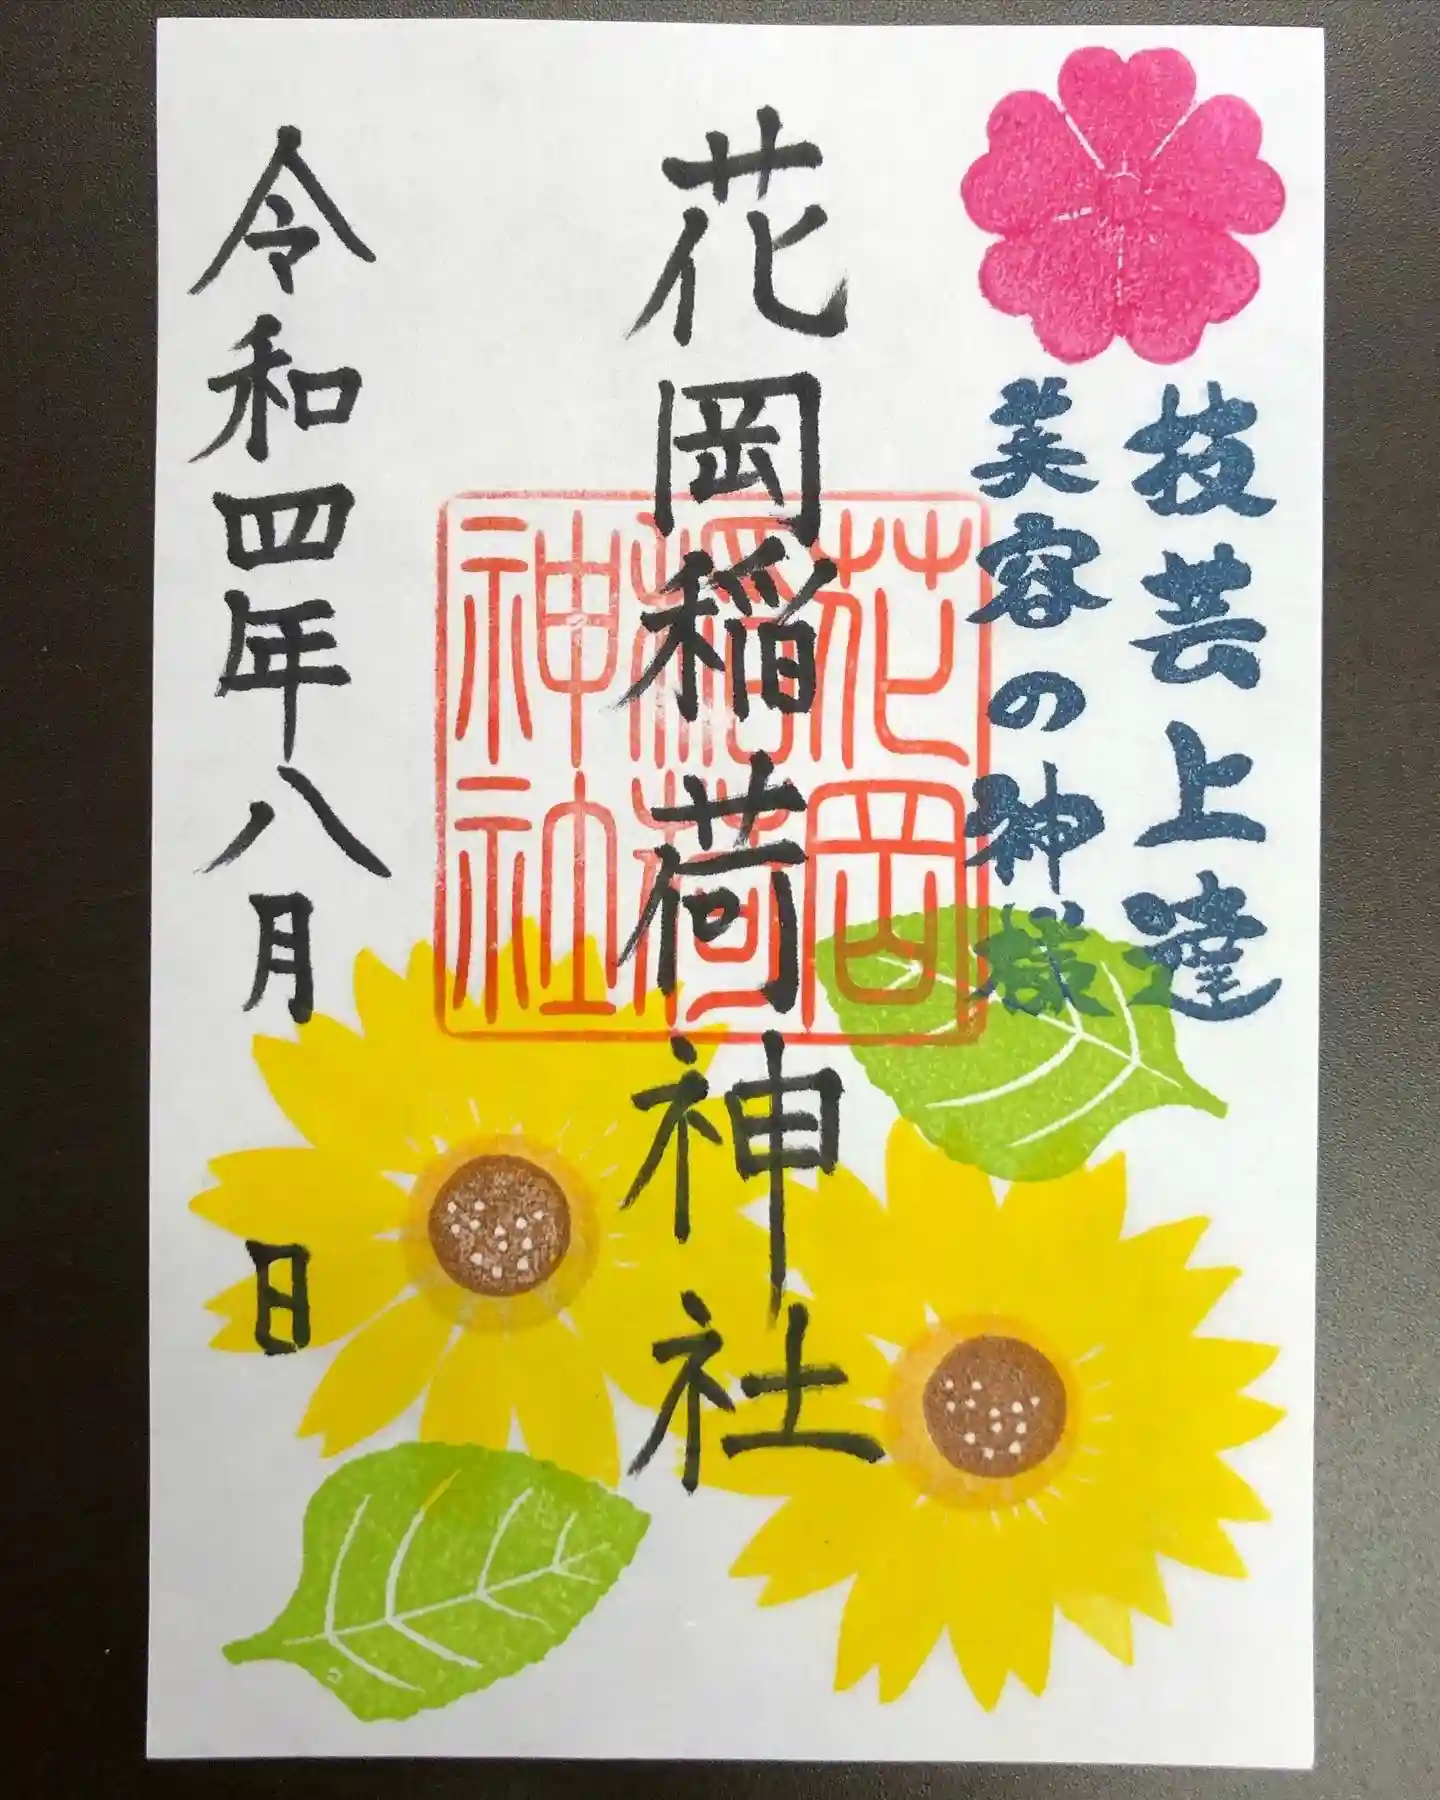 技芸上達
美容の神様
花岡稲荷神社
花岡
稲荷
神社
令和四年八月 日